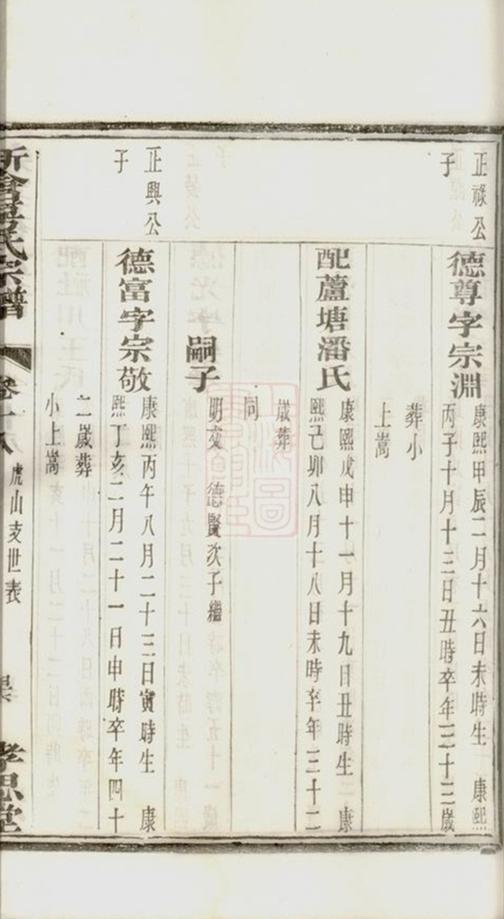 正祿公
子
德尊字宗淵
康熙甲辰二月十六日未時生 康熙
丙子十月十三日丑時卒年三十三歲
葬小
上嵩
配蘆塘潘氏
康熙戊申十一月十九日丑時生 康
熙己卯八月十八日未時卒年三十二
歲葬
同
嗣子
明 德賢次子繼
正興公
子
德富字宗敬
康熙丙午八月二十三日寅時生 康
熙丁亥二月二十一日申時卒年四十
二歲葬
小上嵩
氏宗譜
卷十八
虎山支世表
孝思堂